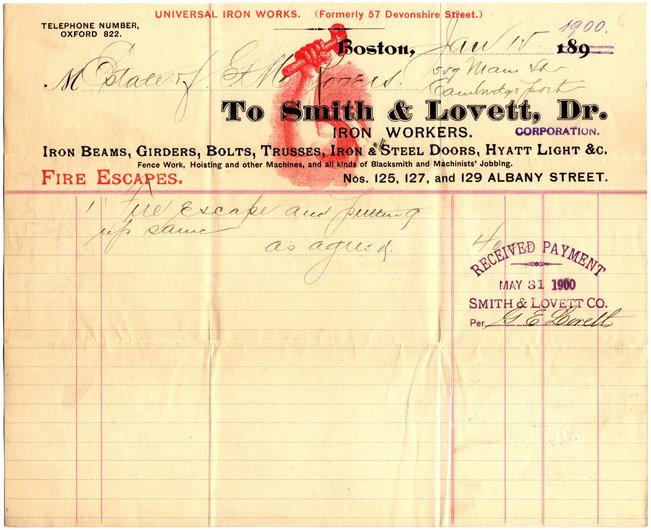 UNIVERSAL IRON WORKS. (Formerly 57 Devonshire Street.)
TELEPHONE NUMBER,
OXFORD 822.
Boston, Jan 15 189 1900.
M Estate of Rogers. 559 Main St
Cambridgeport
To Smith & Lovett, Dr.
IRON WORKERS. CORPORATION.
IRON BEAMS, GIRDERS, BOLTS, TRUSSES, IRON & STEEL DOORS, HYATT LIGHT &C.
Fence Work, Hoisting and other Machines, and all kinds of Blacksmith and Machinists' Jobbing.
FIRE ESCAPES. Nos. 125, 127, and 129 ALBANY STREET.
1 Fire Escape and putting
up same
as agreed.
RECEIVED PAYMENT
MAY 31 1900
SMITH & LOVETT CO.
Per G E Lovett